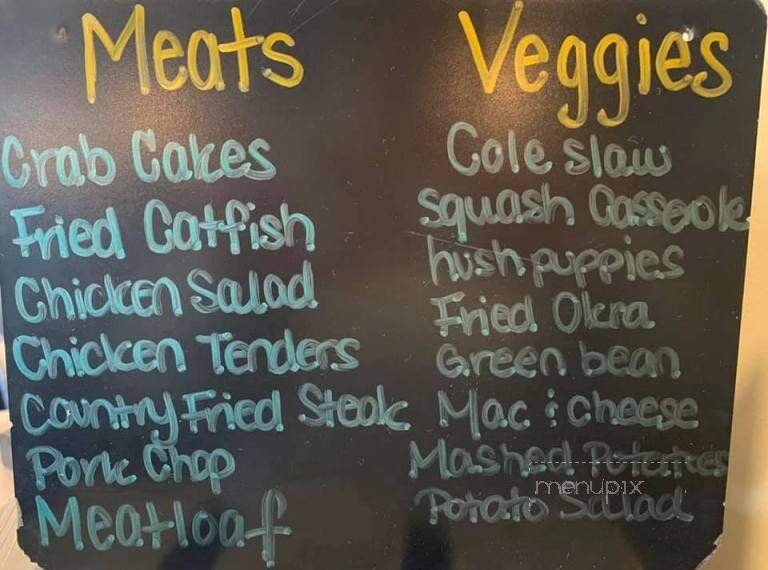 Meats
Crab Cakes
Fried Catfish
Chicken Salad
Chicken Tenders
Country Fried Steak
Pork Chop
Meatloaf
Veggies
Cole slaw
Squash Casserole
hush puppies
Fried Okra
Green bean
Mac & cheese
Mashed Potatoes
Potato Salad
menupix